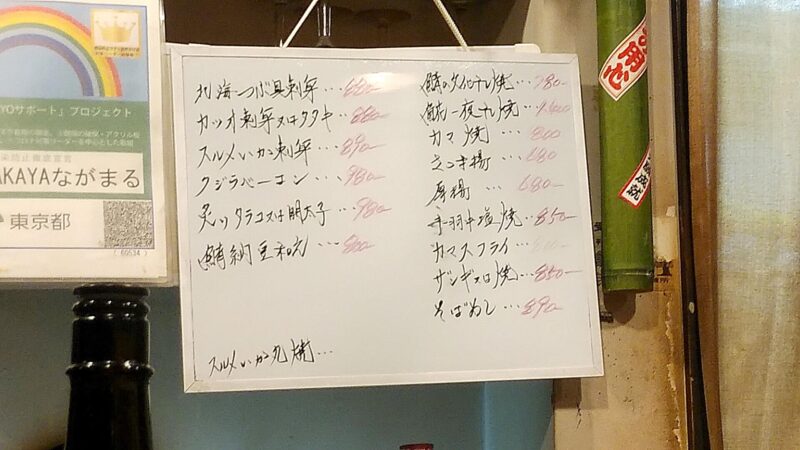 YOサポート」プロジェクト
染防止徹底宣言
AKAYAながまる
東京都
北海つぶ貝刺身…880-
カツオ刺身又はタタキ…880-
スルメいか刺身…890-
クジラベーコン…980-
炙りタラコ又は明太子…980-
納豆和え…800-
スルメいか丸焼…
鯖の文化干し焼…780-
一夜干し焼…1,400
カマ焼…800
さつま揚…680
厚揚…680-
手羽中塩焼…850-
カマスフライ…
ザンギ又は焼…850-
そばめし…890-
用心
成就